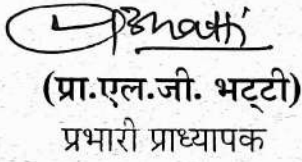 (प्रा.एल.जी. भट्टी)
प्रभारी प्राध्यापक